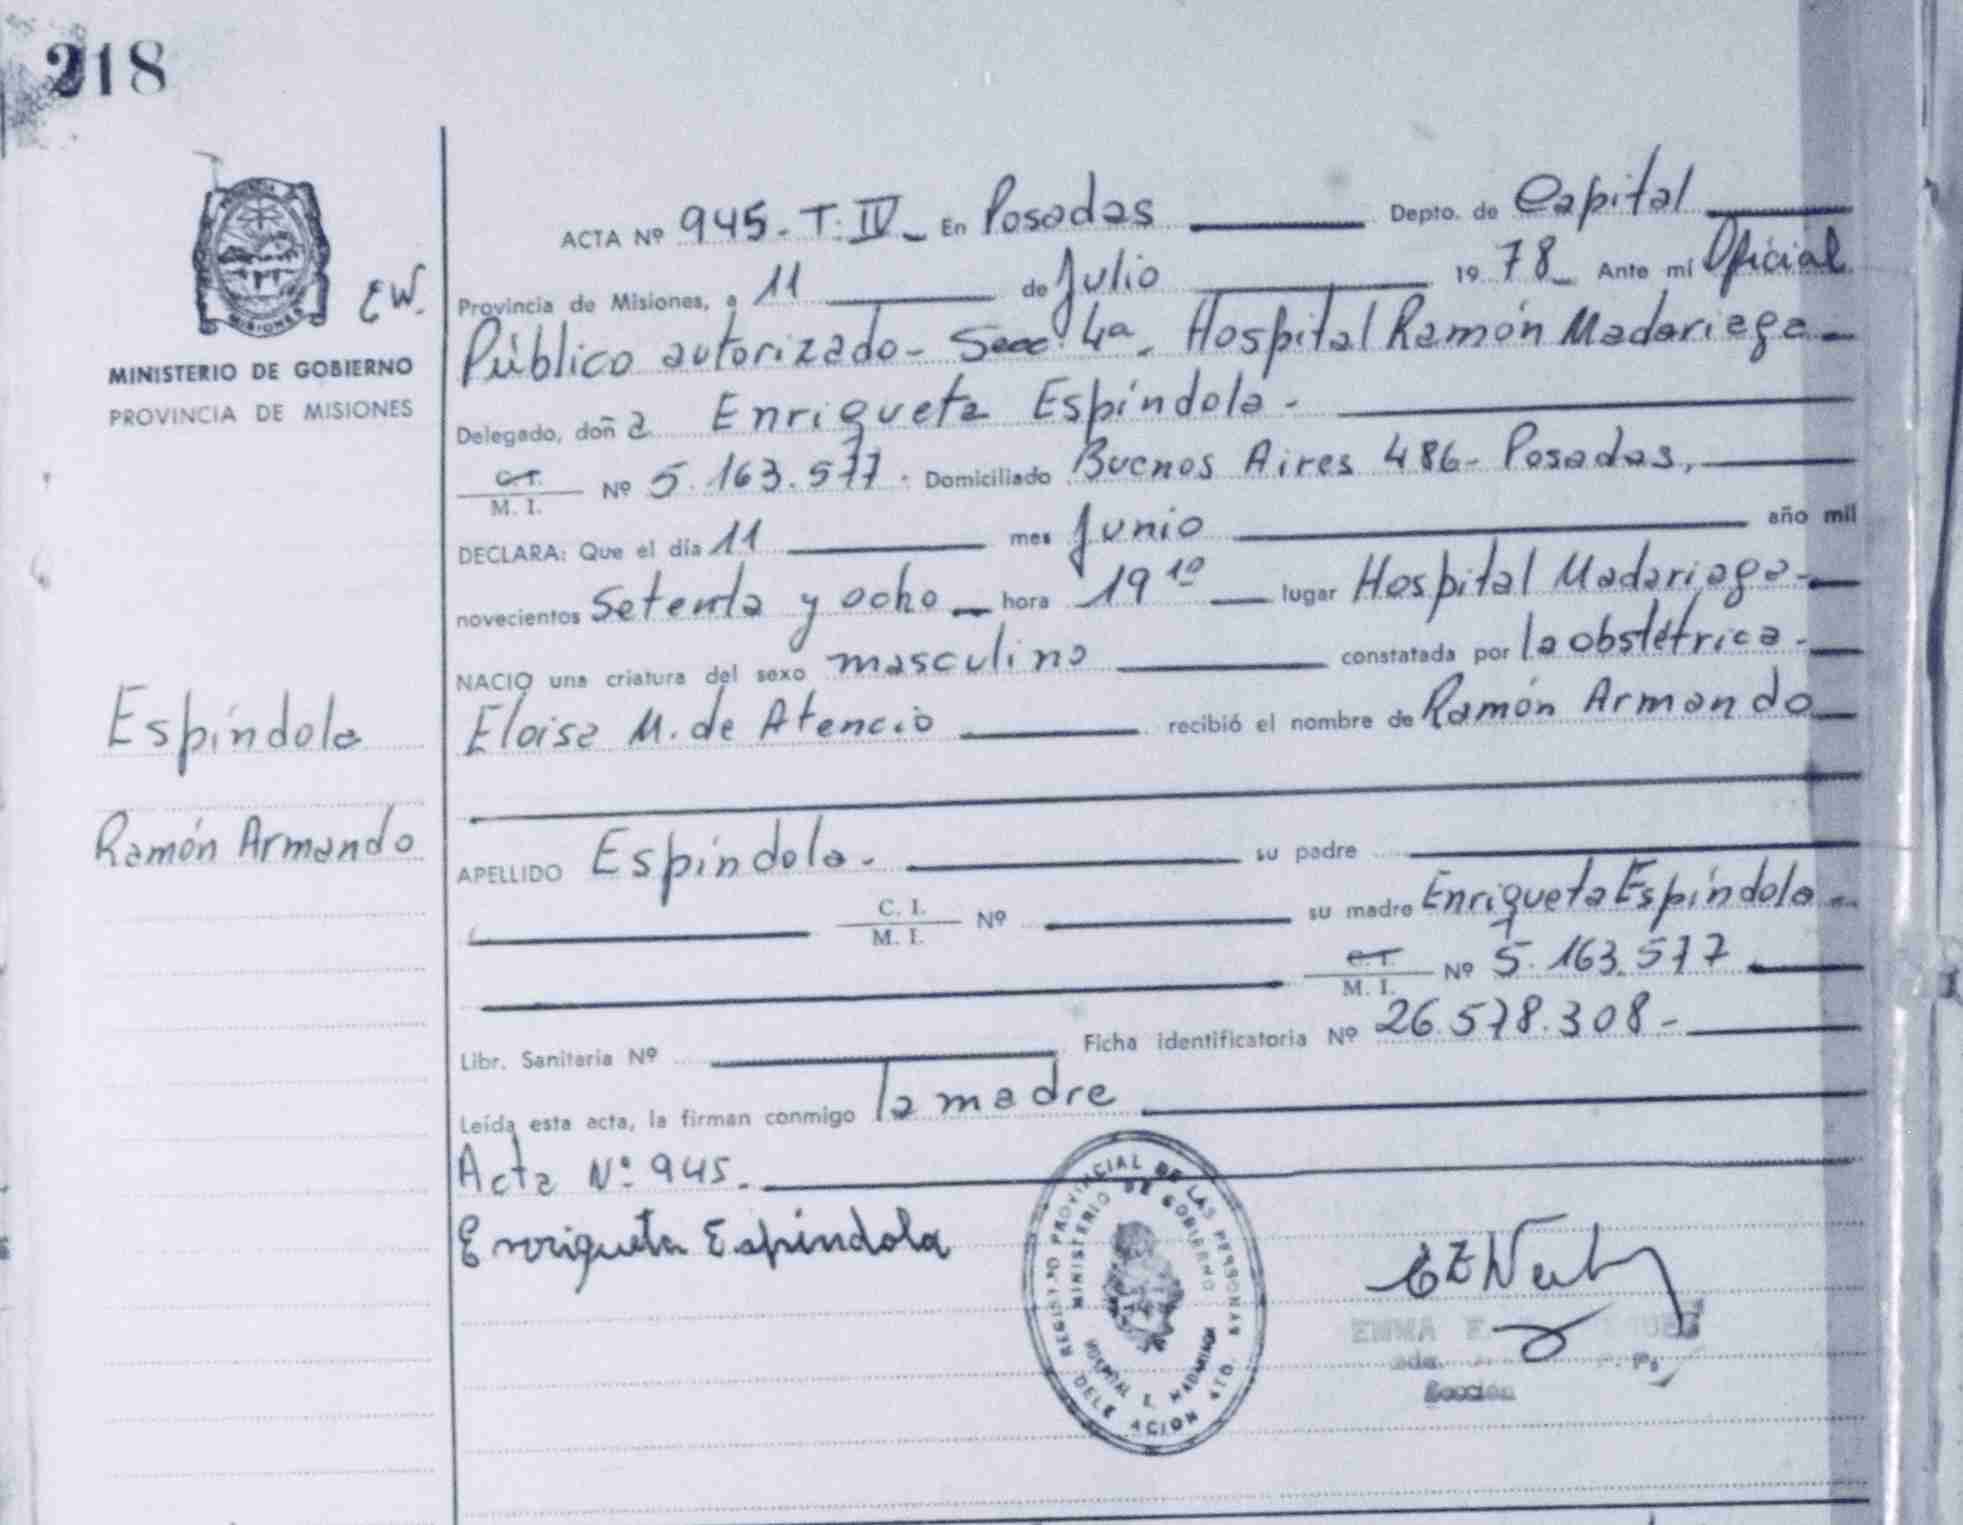 218
MISIONES
EW.
MINISTERIO DE GOBIERNO
PROVINCIA DE MISIONES
Espíndola
Ramón Armando
ACTA Nº 945-T:IV- En Posadas Depto. de Capital
Provincia de Misiones, a 11 de Julio 1978- Ante mí Oficial
Público autorizado- Secc 4a. Hospital Ramón Madariaga-
Delegado, doña Enriqueta Espíndola-
C.I. / M. I. Nº 5.163.577. Domiciliado Buenos Aires 486- Posadas,
DECLARA: Que el día 11 mes Junio año mil
novecientos Setenta y ocho hora 19 10 lugar Hospital Madariaga-
NACIO una criatura del sexo masculino constatada por la obstétrica-
Eloisa M. de Atencio recibió el nombre de Ramón Armando
APELLIDO Espíndola- su padre
C. I. / M. I. Nº su madre Enriqueta Espíndola-
C.I. / M. I. Nº 5.163.577
Libr. Sanitaria Nº Ficha identificatoria Nº 26.578.308-
Leída esta acta, la firman conmigo la madre
Acta Nº 945.
Enriqueta Espíndola
REGISTRO PROVINCIAL DE LAS PERSONAS
MINISTERIO DE GOBIERNO
HOSPITAL R. MADARIAGA
EMMA E.
Sección